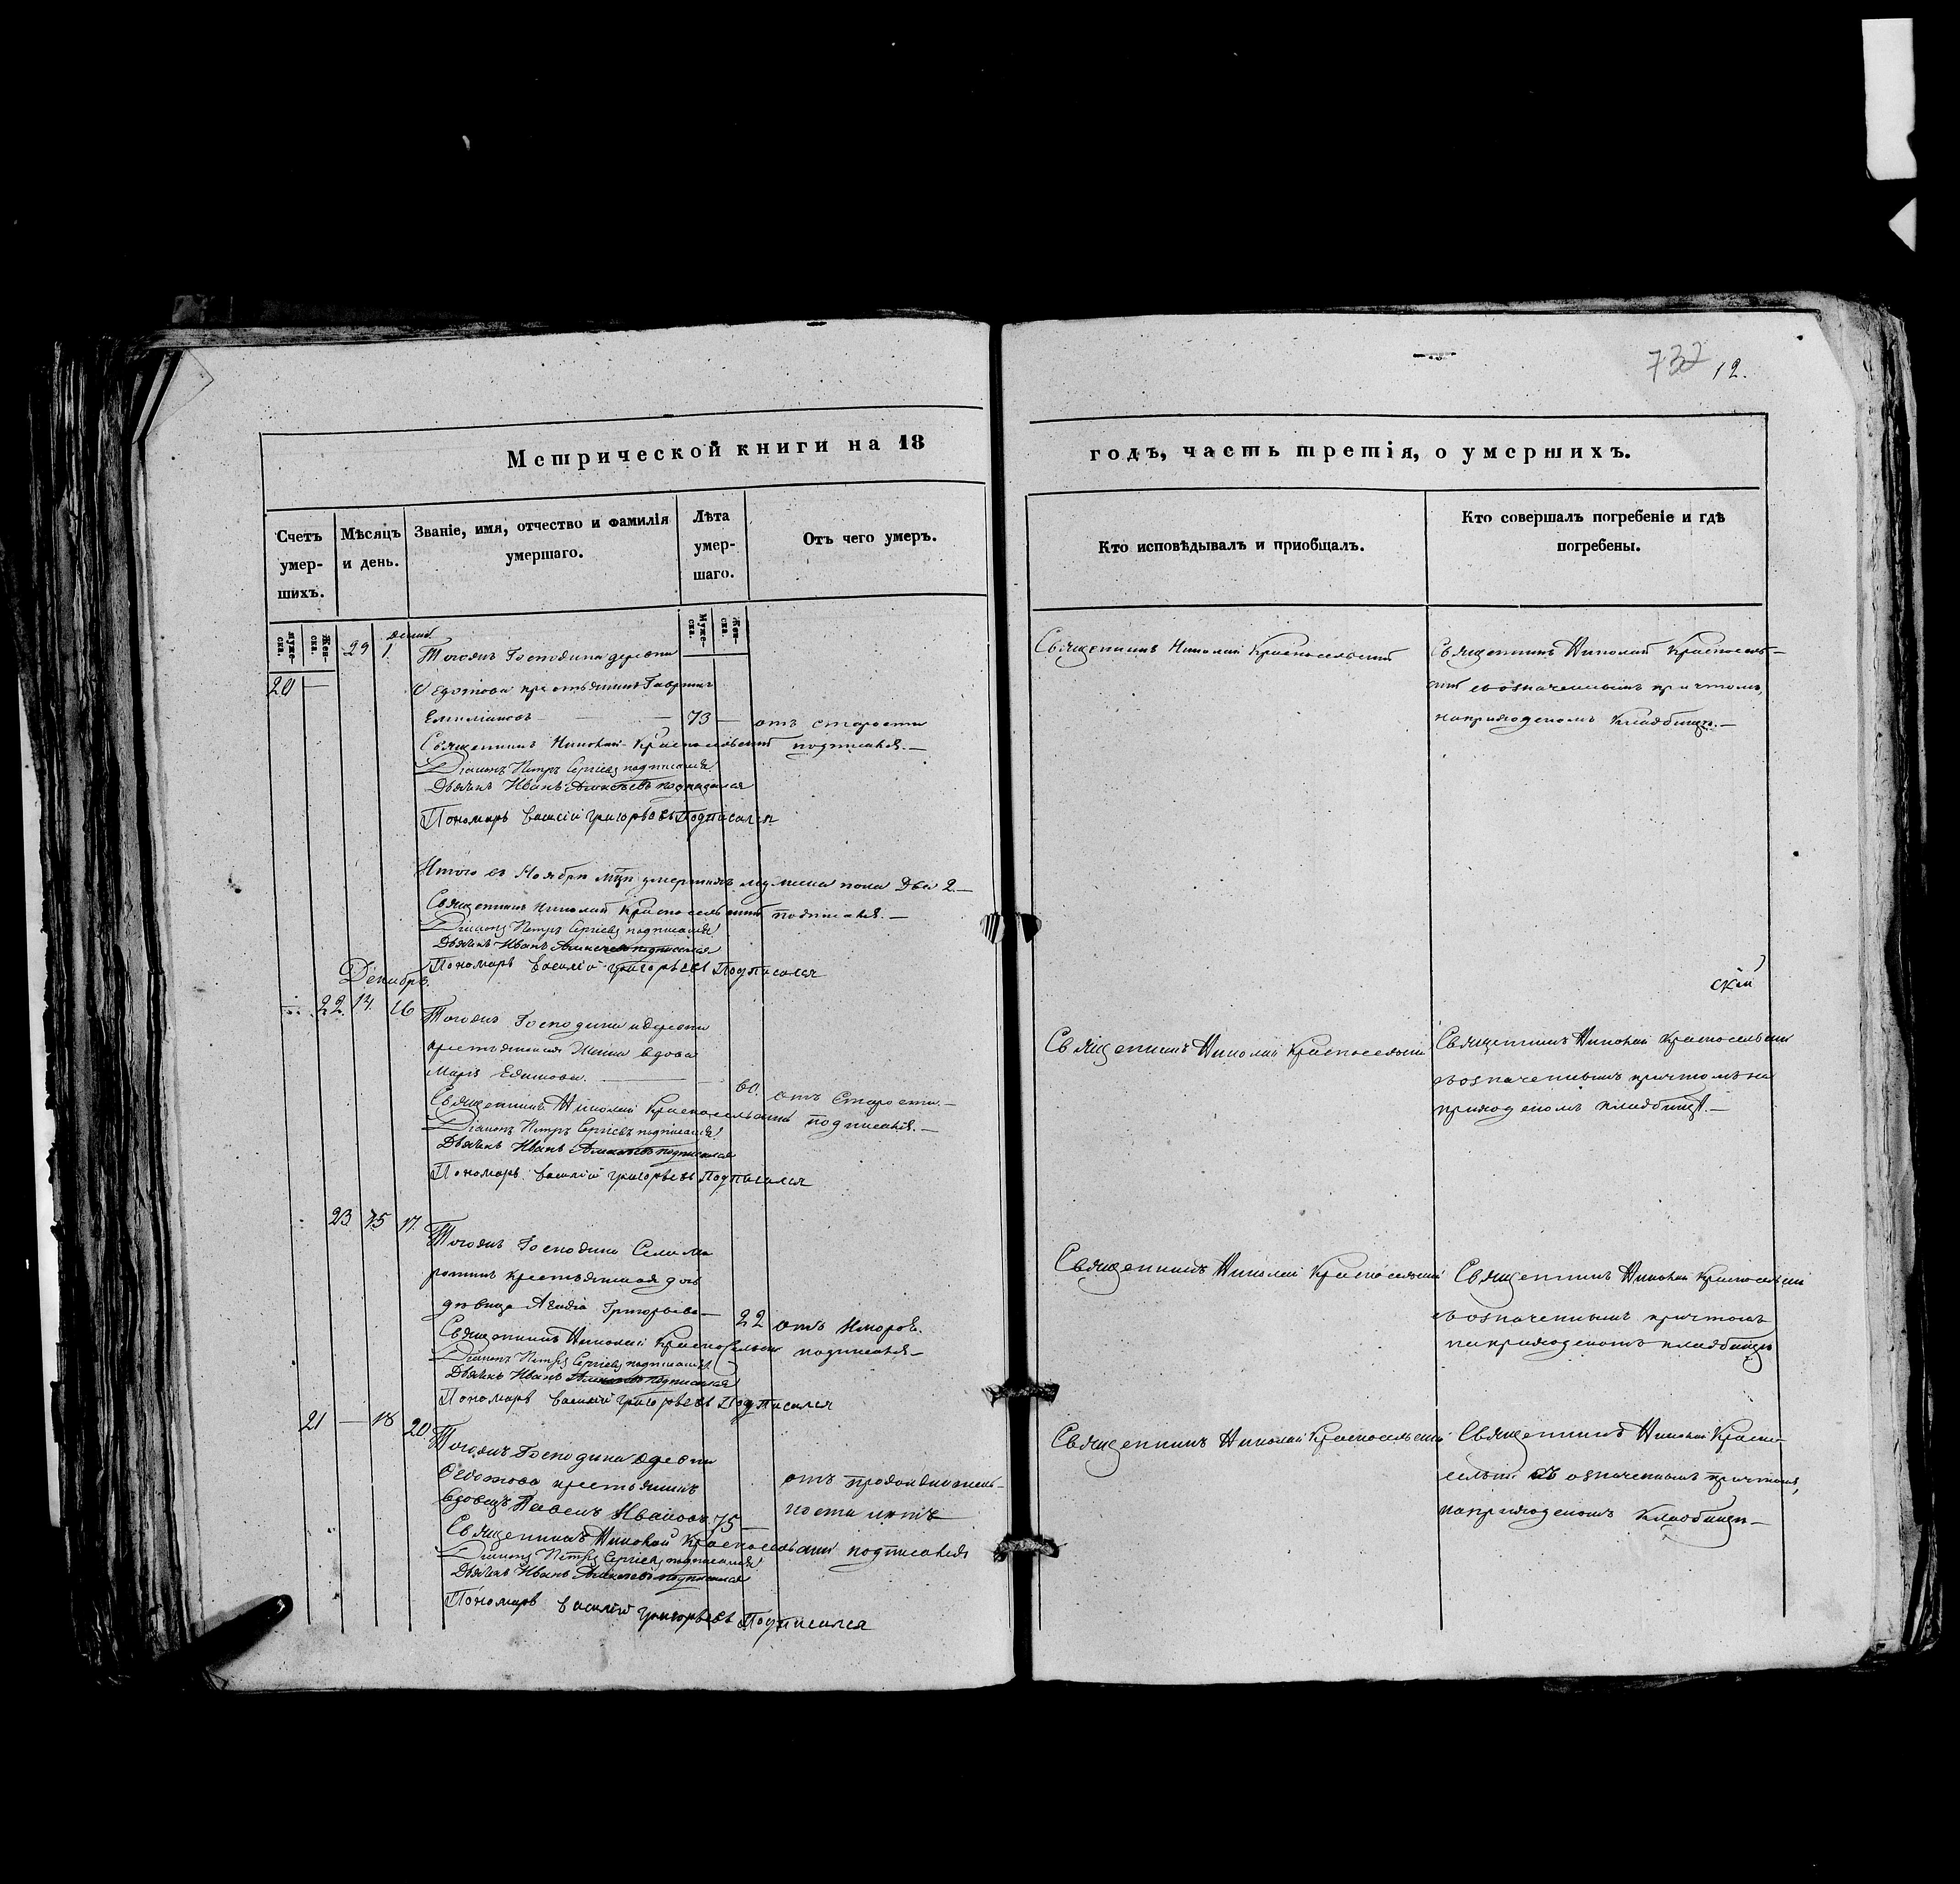 732 12.
Метрической книги на 18
годъ, часть третія, о умершихъ.
Счетъ умер-шихъ.
Мѣсяцъ и день.
Званіе, имя, отчество и фамилія умершаго.
Лѣта умер-шаго.
Отъ чего умеръ.
Кто исповѣдывалъ и приобщалъ.
Кто совершалъ погребеніе и гдѣ погребены.
Муже-ска.
Жен-ска.
Муже-ска.
Жен-ска.
20 — 29 1. декаб.
Тогожъ Господина деревни
Федотова крестьянинъ
Емельяновъ — — 73 — отъ старости
Священникъ Николай Красносельскій подписался. —
Діаконъ Петръ Сергіевъ подписался
Дьячекъ Иванъ Алексѣевъ подписался
Пономарь Василій Григорьевъ Подписался
Священникъ Николай Красносельскій
Священникъ Николай Красносель-
скій съ означеннымъ причтомъ,
на приходскомъ кладбищѣ. —
Итого въ Ноябрѣ мцѣ умершихъ мужеска пола Два 2. —
Священникъ Николай Красносельскій подписался. —
Діаконъ Петръ Сергіевъ подписался
Дьячекъ Иванъ Алексѣевъ подписался
Пономарь Василій Григорьевъ Подписался
Декабрь.
22. 14. 16
Тогожъ Господина
крестьянская Жена вдова
Марія — 60. отъ Старости. —
Священникъ Николай Красносельскій подписался. —
Діаконъ Петръ Сергіевъ подписался
Дьячекъ Иванъ Алексѣевъ подписался
Пономарь Василій Григорьевъ Подписался
Священникъ Николай Красносельскій
скій
Священникъ Николай Красносельскій
съ означеннымъ причтомъ на
приходскомъ кладбищѣ. —
23 15 17.
Тогожъ Господина Села
крестьянская дочь
дѣвица Григорьева — 22 отъ
Священникъ Николай Красносельскій подписался —
Діаконъ Петръ Сергіевъ подписался
Дьячекъ Иванъ Алексѣевъ подписался
Пономарь Василій Григорьевъ Подписался
Священникъ Николай Красносельскій
Священникъ Николай Красносельскій
съ означеннымъ причтомъ
на приходскомъ кладбищѣ
21 — 18 20
Тогожъ Господина деревни
Федотова крестьянинъ
вдовецъ Павелъ Ивановъ 75 —
отъ продолжитель-
ности лѣтъ
Священникъ Николай Красносельскій подписался
Діаконъ Петръ Сергіевъ подписался
Дьячекъ Иванъ Алексѣевъ подписался
Пономарь Василій Григорьевъ Подписался
Священникъ Николай Красносельскій
Священникъ Николай Красно-
сельскій съ означеннымъ причтомъ,
на приходскомъ кладбищѣ —